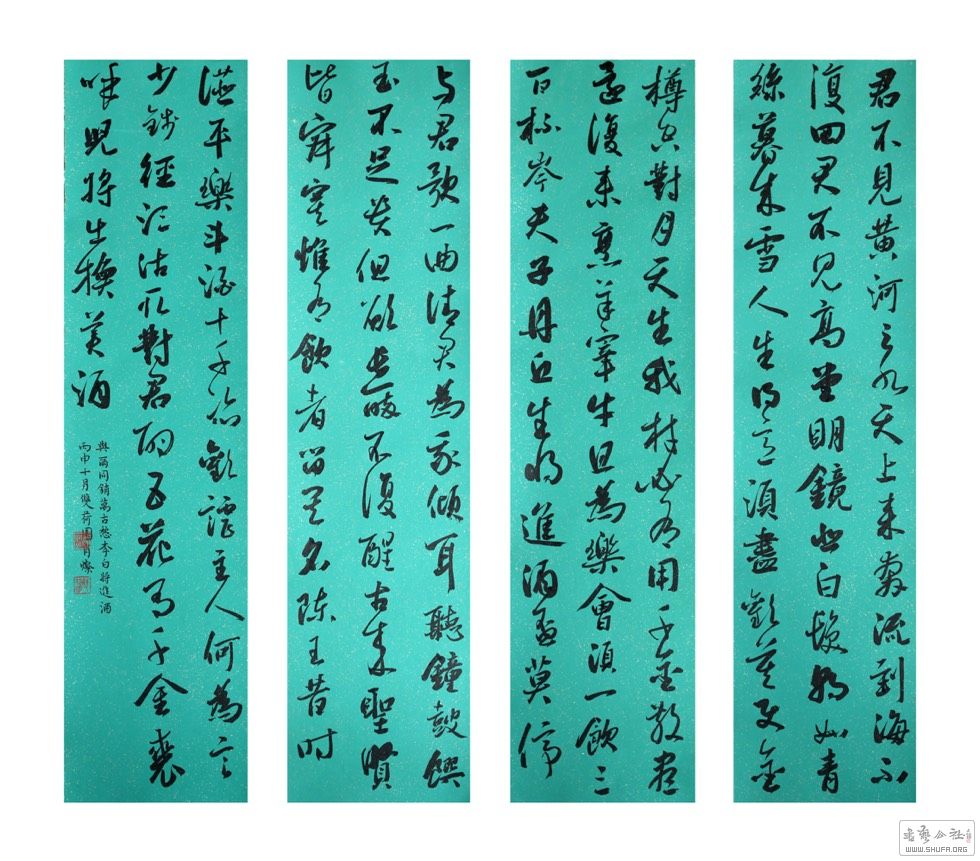 君不見黃河之水天上來奔流到海不
復回君不見高堂明鏡悲白髮朝如青
絲暮成雪人生得意須盡歡莫使金
樽空對月天生我材必有用千金散盡
還復來烹羊宰牛且為樂會須一飲三
百杯岑夫子丹丘生將進酒盃莫停
与君歌一曲請君為我傾耳聽鐘鼓饌
玉不足貴但願長醉不復醒古來聖賢
皆寂寞惟有飲者留其名陳王昔時
讌平樂斗酒十千恣歡謔主人何為言
少錢徑須沽取對君酌五花馬千金裘
呼兒將出換美酒
與爾同銷萬古愁李白將進酒
丙申十月雙荷園
書藝公社
WWW.SHUFA.ORG